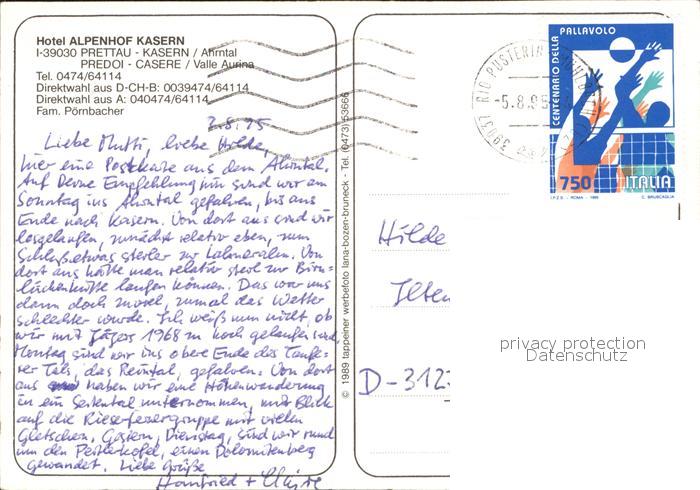 Hotel ALPENHOF KASERN
I-39030 PRETTAU - KASERN / Ahrntal
PREDOI - CASERE / Valle Aurina
Tel. 0474/64114
Direktwahl aus D-CH-B: 0039474/64114
Direktwahl aus A: 040474/64114
Fam. Pörnbacher
2.8.95
Liebe Mutti, liebe Hilde,
hier eine Postkarte aus dem Ahrntal.
Auf Deine Empfehlung hin sind wir am
Sonntag ins Ahrntal gefahren, bis ans
Ende nach Kasern. Von dort aus sind wir
losgelaufen, zunächst relativ eben, zum
Schluß etwas steiler zur Lahneralm. Von
dort aus hätte man relativ steil zur Birn-
lückenhütte laufen können. Das war uns
dann doch zuviel, zumal das Wetter
schlechter wurde. Ich weiß nun nicht, ob
wir mit Jägers 1968 so hoch gelaufen sind.
Montag sind wir ins obere Ende des Taufe-
rer Tals, das Reintal, gefahren. Von dort
aus haben wir eine Höhenwanderung
in ein Seitental unternommen, mit Blick
auf die Rieserfernergruppe mit vielen
Gletschern. Gestern, Dienstag, sind wir rund
um den Peitlerkofel, einen Dolomitenberg
gewandert. Liebe Grüße
Hanfried +
© 1989 tappeiner werbefoto lana-bozen-bruneck - Tel. (0473) 53666
39037 RIO PUSTERIA
-5.8.95
CENTENARIO DELLA PALLAVOLO
750 ITALIA
I.P.Z.S. - ROMA - 1995 C. BRUSCAGLIA
Hilde
Ilten
D-312
privacy protection
Datenschutz